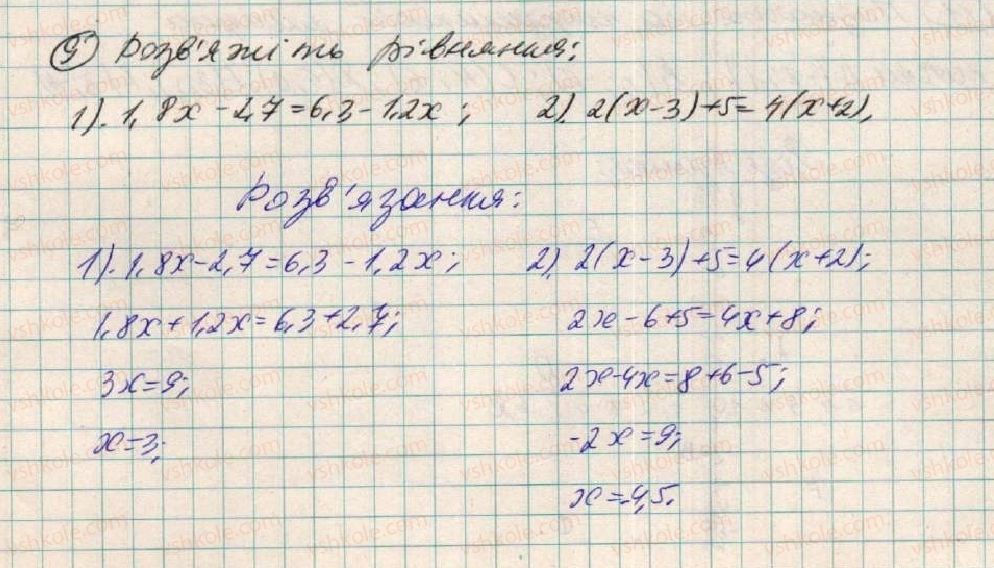 9 Розв'яжіть рівняння:
1). 1,8x - 2,7 = 6,3 - 1,2x; 2). 2(x-3)+5 = 4(x+2),
Розв'язання:
1). 1,8x - 2,7 = 6,3 - 1,2x; 2). 2(x-3)+5 = 4(x+2);
1,8x + 1,2x = 6,3 + 2,7; 2x - 6 + 5 = 4x + 8;
3x = 9; 2x - 4x = 8 + 6 - 5;
x = 3; -2x = 9;
x = -4,5.